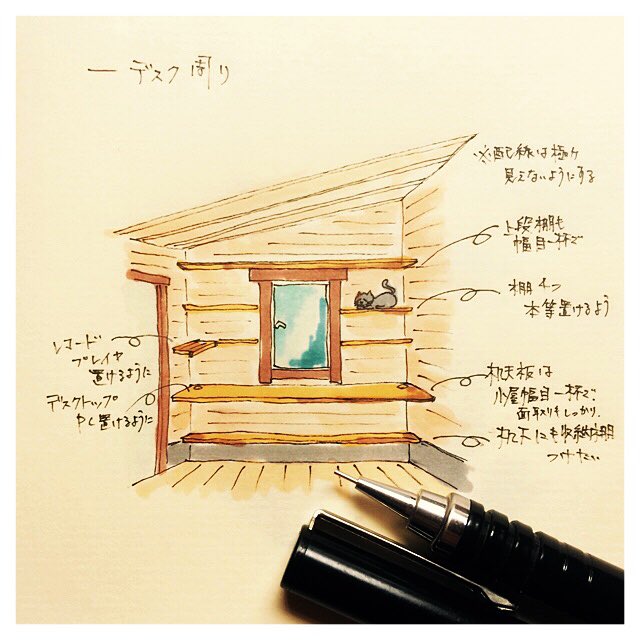 ー デスク周り
※配線は極力
見えないようにする
上段棚も
幅目一杯で
棚イン
本等置けるよう
レコード
プレイヤ
置けるように
デスクトップ
PC置けるように
机天板は
小屋幅目一杯で、
面取りもしっかり。
机下にも収納棚
つけたい